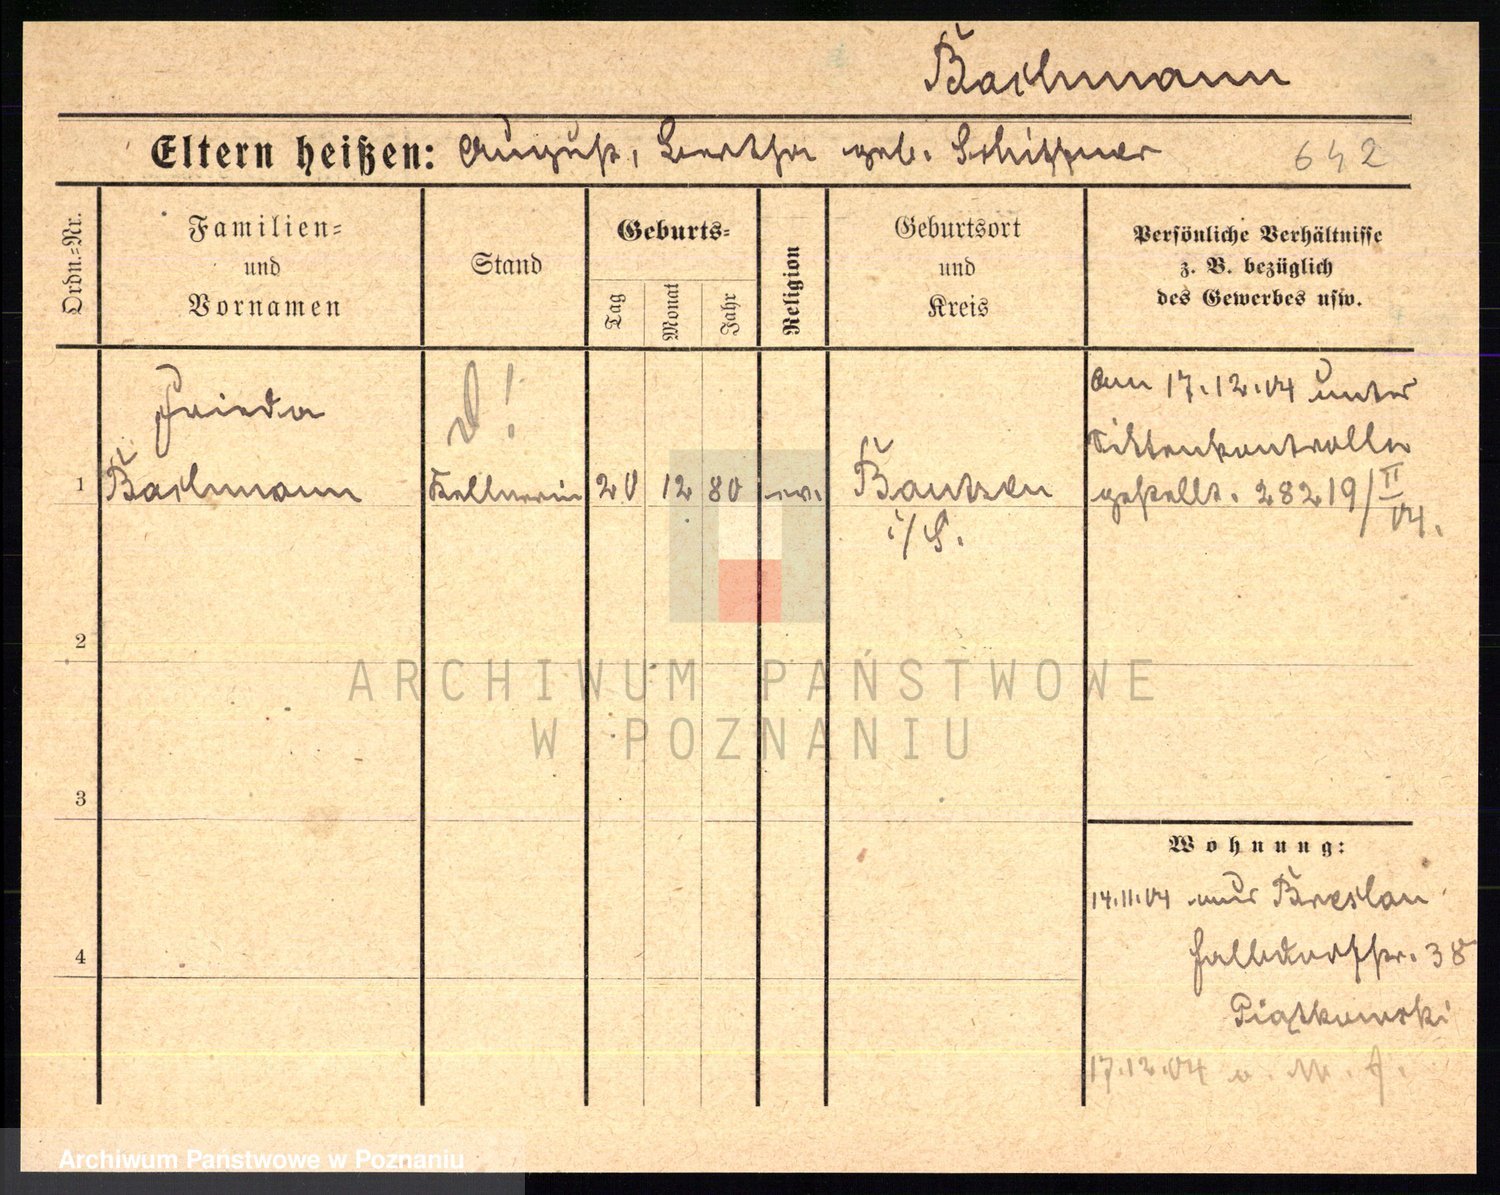 Bachmann
Eltern heißen: August, Bertha geb. Schittner
642
Ordn.-Nr.
Familien-
und
Vornamen
Stand
Geburts-
Tag
Monat
Jahr
Religion
Geburtsort
und
Kreis
Persönliche Verhältnisse
z. B. bezüglich
des Gewerbes usw.
Frieda
1 Bachmann Kellnerin 20 12 80 ev. Bautzen
i/S.
Am 17.12.04 unter
Sittenkontrolle
gestellt. 28219/II
04.
2
3
4
Wohnung:
14.11.04 aus Breslau
Halbdorfstr. 38
Piątkowski
17.12.04 v. A.
ARCHIWUM PAŃSTWOWE
W POZNANIU
Archiwum Państwowe w Poznaniu